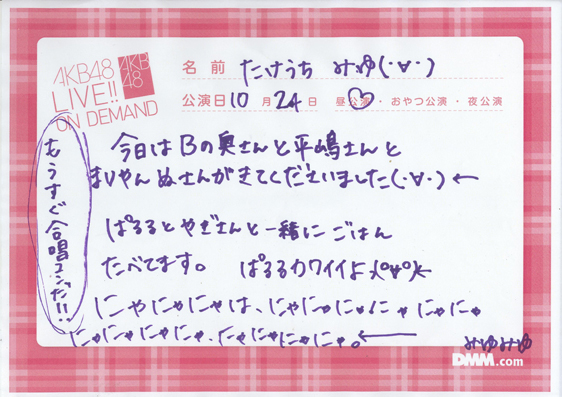 AKB48
LIVE!!
ON DEMAND
AKB
48
名前 たけうち みゆ(・∀・)
公演日 10月 24日 昼公演・おやつ公演・夜公演
もうすぐ合唱コンだ!!
今日はBの奥さんと平嶋さんと
まりやんぬさんがきてくださいました(・∀・)←
ぱるるとやぎさんと一緒にごはん
たべてます。 ぱるるカワイイよ
にゃにゃにゃは、にゃにゃにゃにゃにゃにゃ
にゃにゃにゃにゃ、にゃにゃにゃにゃ。←
みゆみゆ
DMM.com